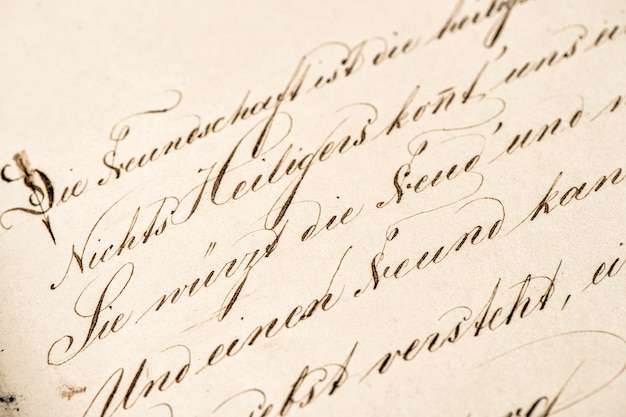 Die Freundschaft ist die heilig
Nichts Heiligers konñt' uns ei
Sie würzt die Freud' und m
Und einen Freund kan
liebst versteht, ei